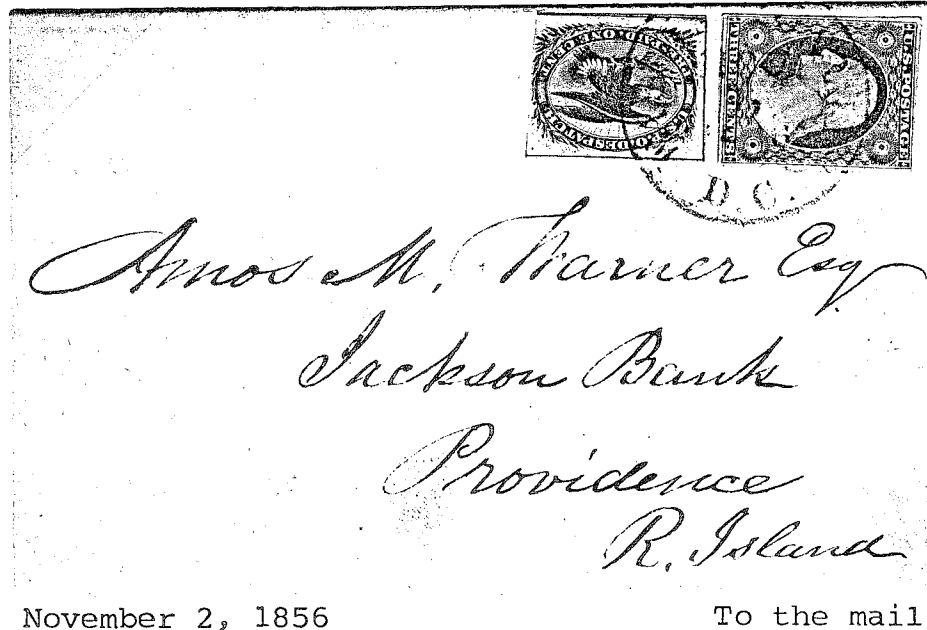 U.S. POSTAGE
THREE CENTS
D.C.
Amos M. Warner Esq
Jackson Bank
Providence
R. Island
November 2, 1856
To the mail